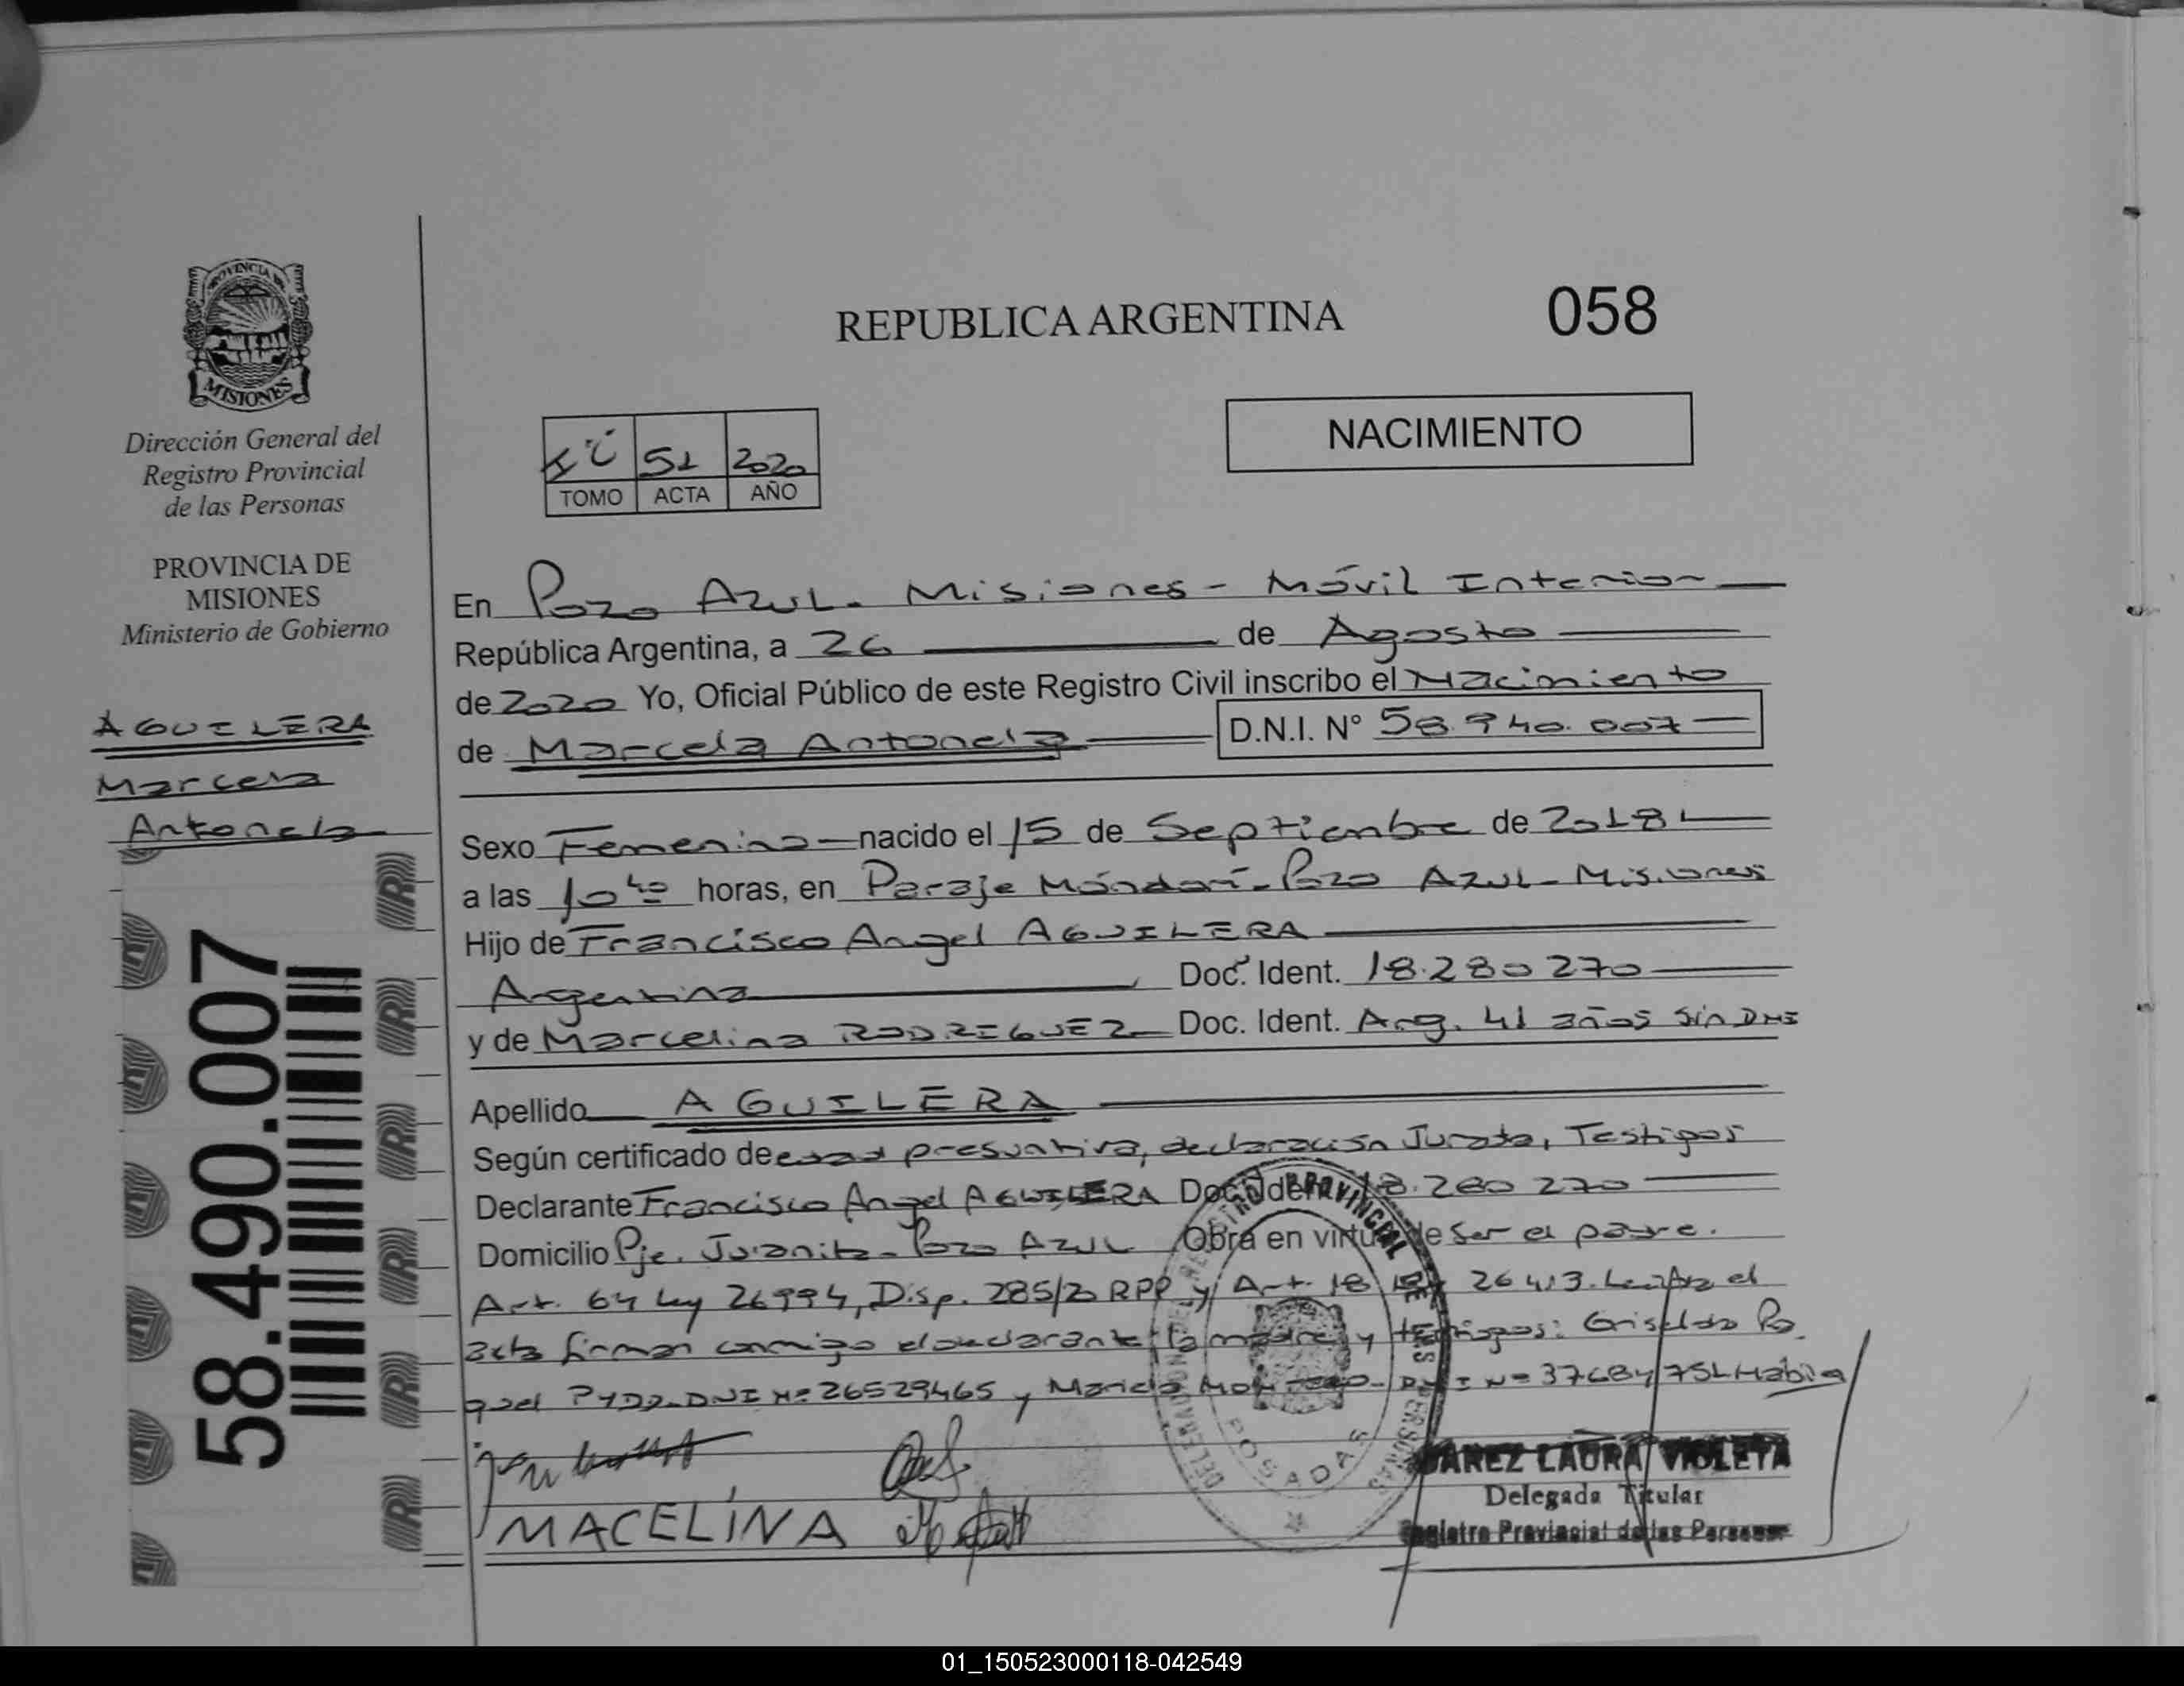 PROVINCIA DE
MISIONES
Dirección General del
Registro Provincial
de las Personas
PROVINCIA DE
MISIONES
Ministerio de Gobierno
AGUILERA
Marcela
Antonela
58.490.007
REPUBLICA ARGENTINA
058
NACIMIENTO
51 2020
TOMO ACTA AÑO
En Pozo Azul - Misiones - Móvil Interior
República Argentina, a 26 de Agosto
de 2020 Yo, Oficial Público de este Registro Civil inscribo el Nacimiento
de Marcela Antonela D.N.I. Nº 58.940.007
Sexo Femenino nacido el 15 de Septiembre de 2018
a las 10 40 horas, en Paraje Mándorí - Pozo Azul - Misiones
Hijo de Francisco Angel AGUILERA
Argentina Doc. Ident. 18.280270
y de Marcelina RODRIGUEZ Doc. Ident. Arg. 41 años sin DNI
Apellido AGUILERA
Según certificado de edad presuntiva, declaración Jurada, Testigos
Declarante Francisco Angel AGUILERA Doc. Ident. 18.280 270
Domicilio Pje. Juanita - Pozo Azul Obra en virtud de ser el padre.
Art. 64 Ley 26994, Disp. 285/20 RPP y Art. 18 Ley 26413. Leída el
acta firman conmigo el declarante, la madre y testigos: Griselda Ra
quel DNI Nº 26529465 y Mariela DNI Nº
MACELINA
POSADAS
LAURA VIOLETA
Delegada Titular
Registro Provincial de las Personas
01_150523000118-042549